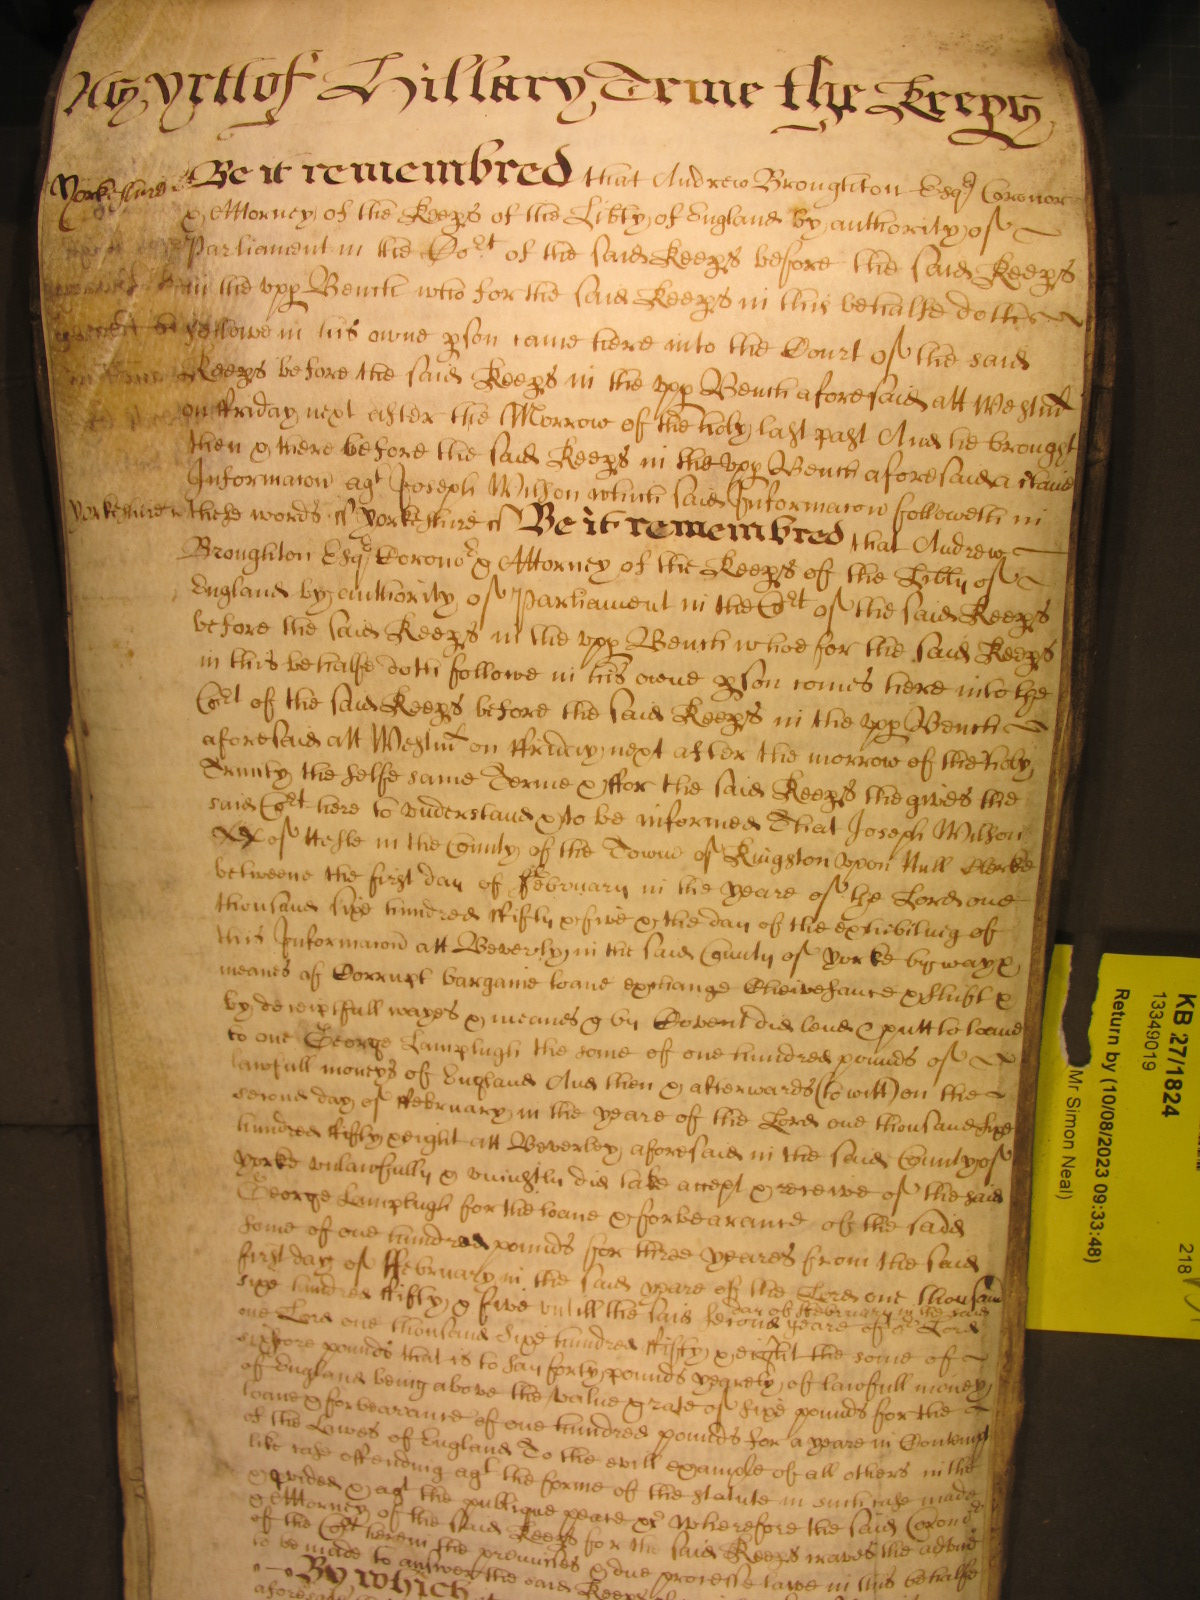 As yett of Hillary Terme the Keeps
Yorkeshire ss Be it remembred that Andrew Broughton Esqr Coronor
& Attorney of the Keeps of the Libty of England by authority of
Parliament in the Cort of the said Keeps before the said Keeps
in the upp Bench who for the said Keeps in this behalfe doth
followe in his owne pson came here into the Court of the said
Keeps before the said Keeps in the upp Bench aforesaid att Westm
on ffriday next after the Morrow of the holy last past And he brought
then & there before the said Keeps in the upp Bench aforesaid a
Informacon agt Joseph Wilson which said Informacon followeth in
Yorkeshire ss these words ss Yorkeshire ss Be it remembred that Andrew
Broughton Esqr Corono & Attorney of the Keeps of the Libty of
England by authority of Parliament in the Cort of the said Keeps
before the said Keeps in the upp Bench whoe for the said Keeps
in this behalfe doth followe in his owne pson comes here into the
Cort of the said Keeps before the said Keeps in the upp Bench
aforesaid att Westm on ffriday next after the morrow of the holy
Trinity the selfe same Terme & ffor the said Keeps the gives the
said Cort here to understand & to be informed That Joseph Wilson
of Hesle in the County of the Towne of Kingston upon Hull Clerke
betweene the first day of February in the yeare of the Lord one
thousand sixe hundred ffifty & five & the day of the exhibiting of
this Informacon att Beverly in the said County of Yorke by way &
meanes of Corrupt bargaine loane exchange Chevesance & shift &
by deceiptfull wayes & meanes & by Covent did lend & putt to loane
to one George Lamplugh the some of one hundred pounds of
lawfull moneys of England And then & afterwards (to witt) on the
second day of ffebruary in the yeare of the Lord one thousand sixe
hundred ffifty & eight att Beverley aforesaid in the said County of
Yorke unlawfully & uniustly did take accept & receive of the said
George Lamplugh for the loane & forbearance of the said
some of one hundred pounds for three yeares from the said
first day of ffebruary in the said yeare of the Lord one thousand
sixe hundred ffifty & five untill the said second day of ffebruary in the said yeare of or Lord
one Lord one thousand sixe hundred ffifty & eight the some of
sixscore pounds that is to say forty pounds yearely of lawfull money
of England being above the value & rate of sixe pounds for the
loane & forbearance of one hundred pounds for a yeare in Contempt
of the Lawes of England To the evill example of all others in the
like case offending agt the forme of the statute in such case made
& pvided & agt the publique peace &c Wherefore the said Corono
& Attorney of the said Keeps for the said Keeps craves the advice
of the Cort herein the premisses & due processe lawe in this behalfe
to be made to answer the said Keeps
By which
aforesaid
KB 27/1824
13349019
Return by (10/08/2023 09:33:48)
Mr Simon Neal)
218